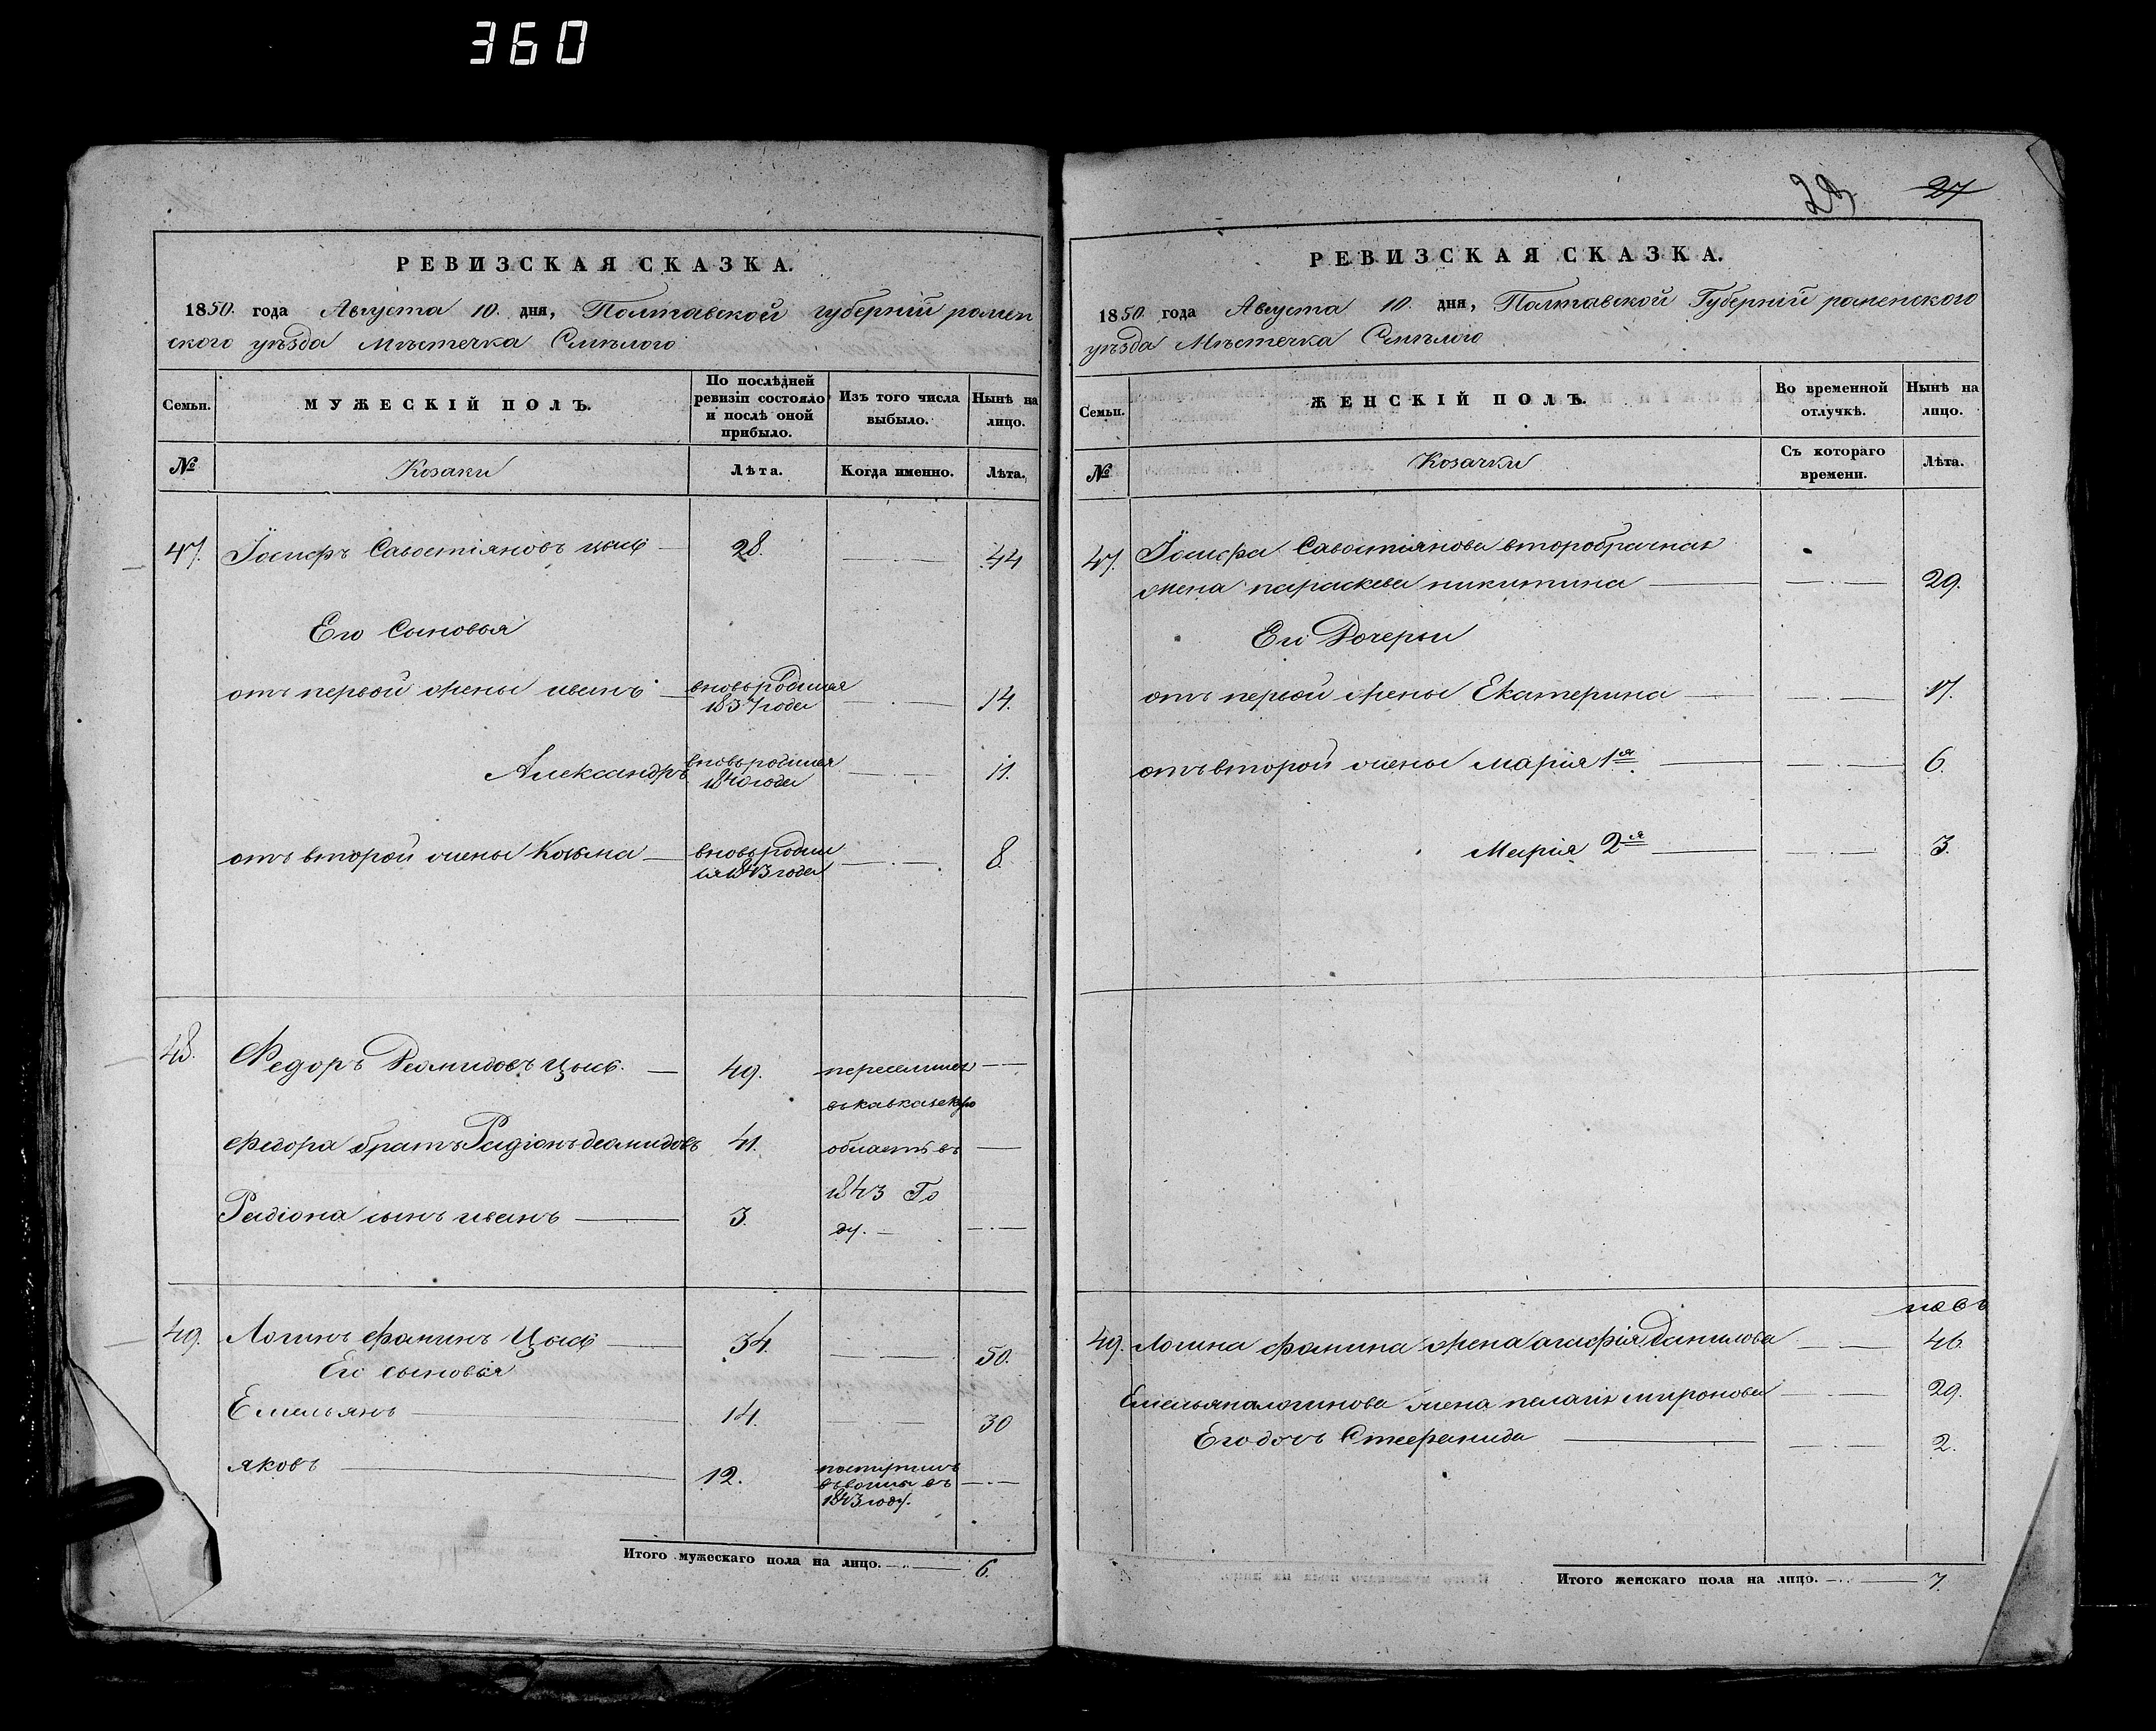 360
РЕВИЗСКАЯ СКАЗКА.
1850. года Августа 10. дня, Полтавской губерніи ромен
ского уѣзда Мѣстечка Смѣлого
Семьи.
МУЖЕСКІЙ ПОЛЪ.
По послѣдней ревизіи состояло и послѣ оной прибыло.
Изъ того числа выбыло.
Нынѣ на лицо.
№
Козаки
Лѣта.
Когда именно.
Лѣта.
47. Іосифъ Савостіяновъ 28. 44
Его Сыновья
отъ первой жены иванъ вновьродился 1837 года 14.
Александръ вновьродился 1840 года 11.
отъ второй жены Козьма вновьродил ся 1843 года 8.
48. Федоръ Демидовъ 49. переселился
въ кавказскую
федора братъ Радіонъ демидовъ 41. область въ
1843 Го
Радіона сынъ иванъ 3. ду.
49. Логинъ фоминъ 34. 50.
Его сыновья
Емельянъ 14. 30
яковъ 12. поступилъ
въ въ
1843 году.
Итого мужескаго пола на лицо. 6.
29 27
РЕВИЗСКАЯ СКАЗКА.
1850. года Августа 10. дня, Полтавской Губерніи роменского
уѣзда Мѣстечка Смѣлого
Семьи.
ЖЕНСКІЙ ПОЛЪ.
Во временной отлучкѣ.
Нынѣ на лицо.
№
Козачки
Съ котораго времени.
Лѣта.
47. Іосифа Савостіянова второбрачная
жена параскева никитина 29.
Его Дочеры
отъ первой жены Екатерина 17.
отъ второй жены марія 1я 6.
Марія 2я 3.
49. Логина фомина жена агафія Данилова 46.
Емельяна логинова жена пелагія миронова 29.
Его дочь Стефанида 2.
Итого женскаго пола на лицо. 7